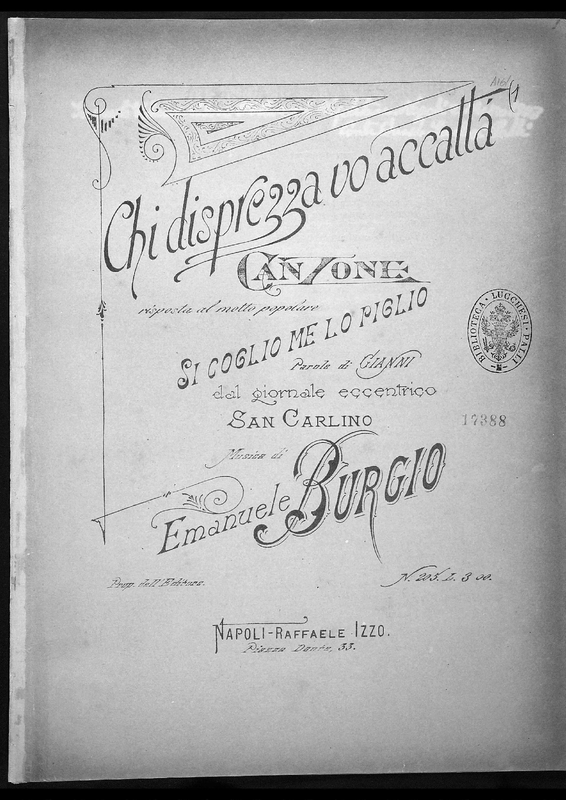 Chi disprezza vo accattá
CANZONE
risposta al motto popolare
SI COGLIO ME LO PIGLIO
Parole di GIANNI
dal giornale eccentrico
SAN CARLINO
Musica di
Emanuele BURGIO
Prop. dell'Editore.
N. 205. L. 3 00.
NAPOLI-RAFFAELE IZZO.
Piazza Dante, 33.
BIBLIOTECA · LUCCHESI · PALLI
N
17388